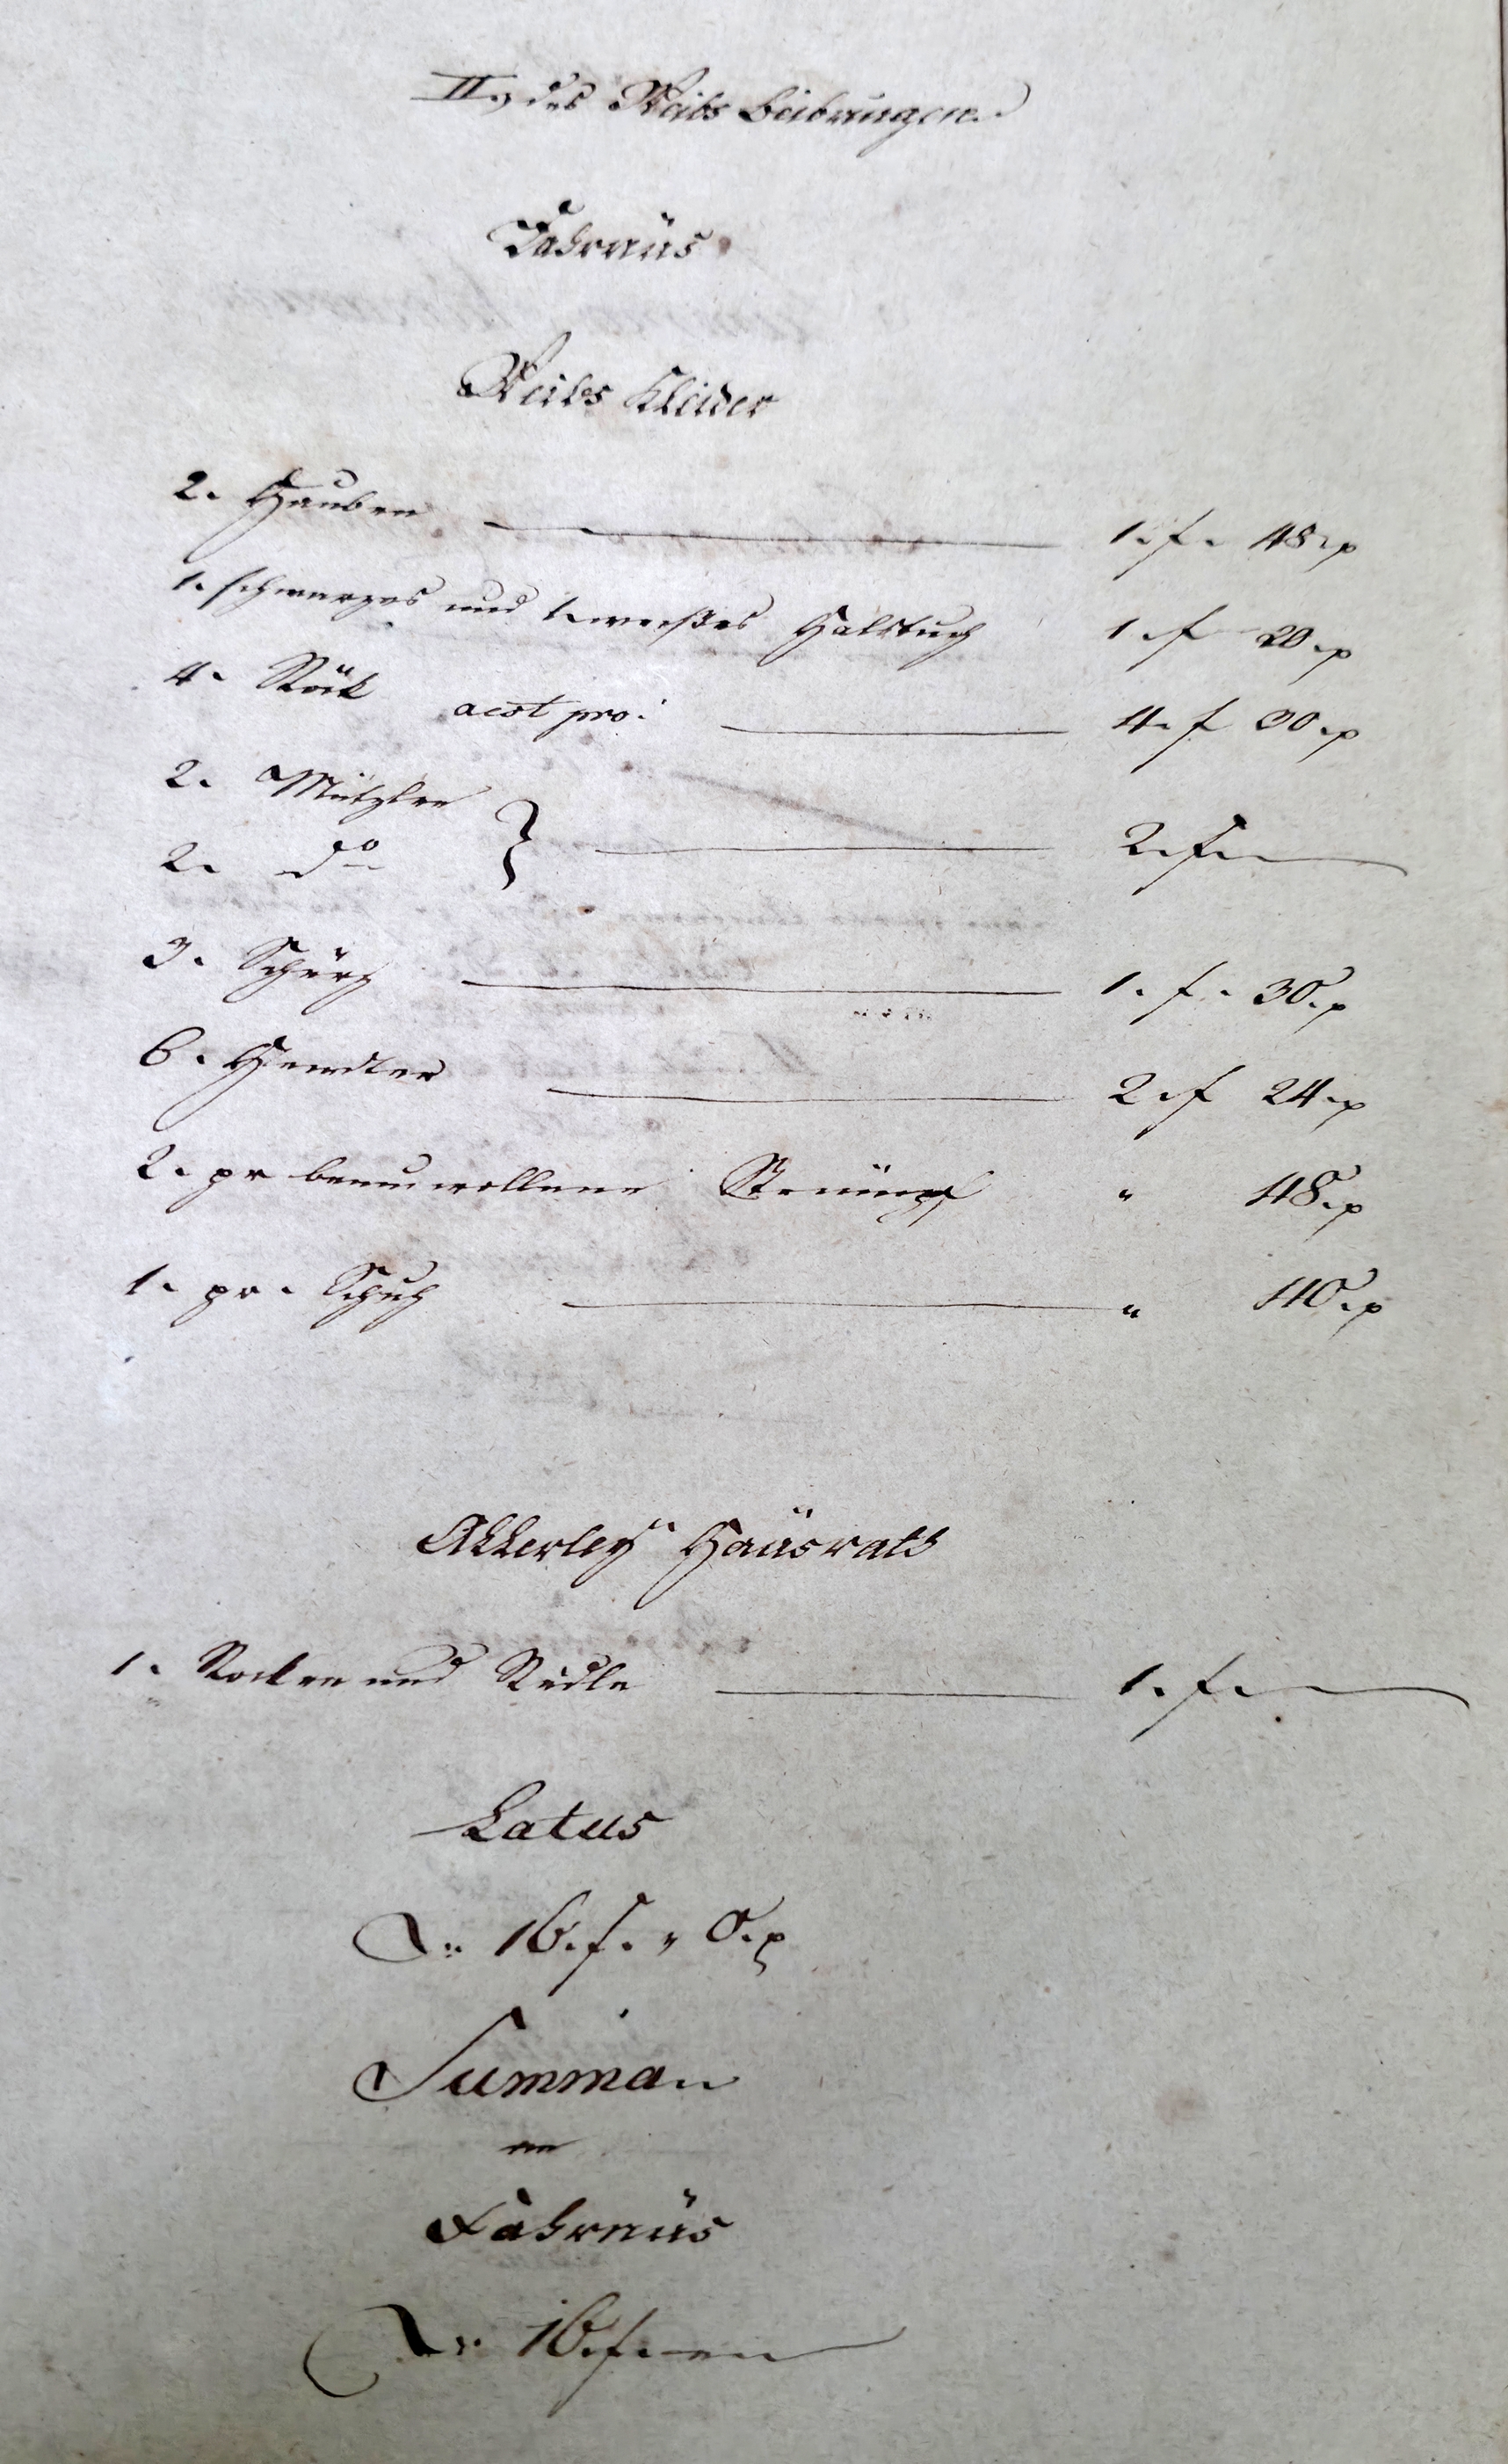 II., des Weibs Beibringen.
Fahrnüs
Weibs Kleider
2. Hauben 1. f. 48. x
1. schwarzes und 1. weißes Halstuch 1. f 20. x
4. Röck aest pro: 4. f 30. x
2. Mützlen
2. do } 2. f. —
3. Schürz 1. f. 30. x
6. Hemder 2. f 24. x
2. pr baumwollene Strümpf " 48. x
1. pr. Schuh " 40. x
Allerley Haüsrath
1. Rocken und Rädle 1. f. —
Latus
16. f. " 0. x
Summa
an
Fahrnüs
16. f. —